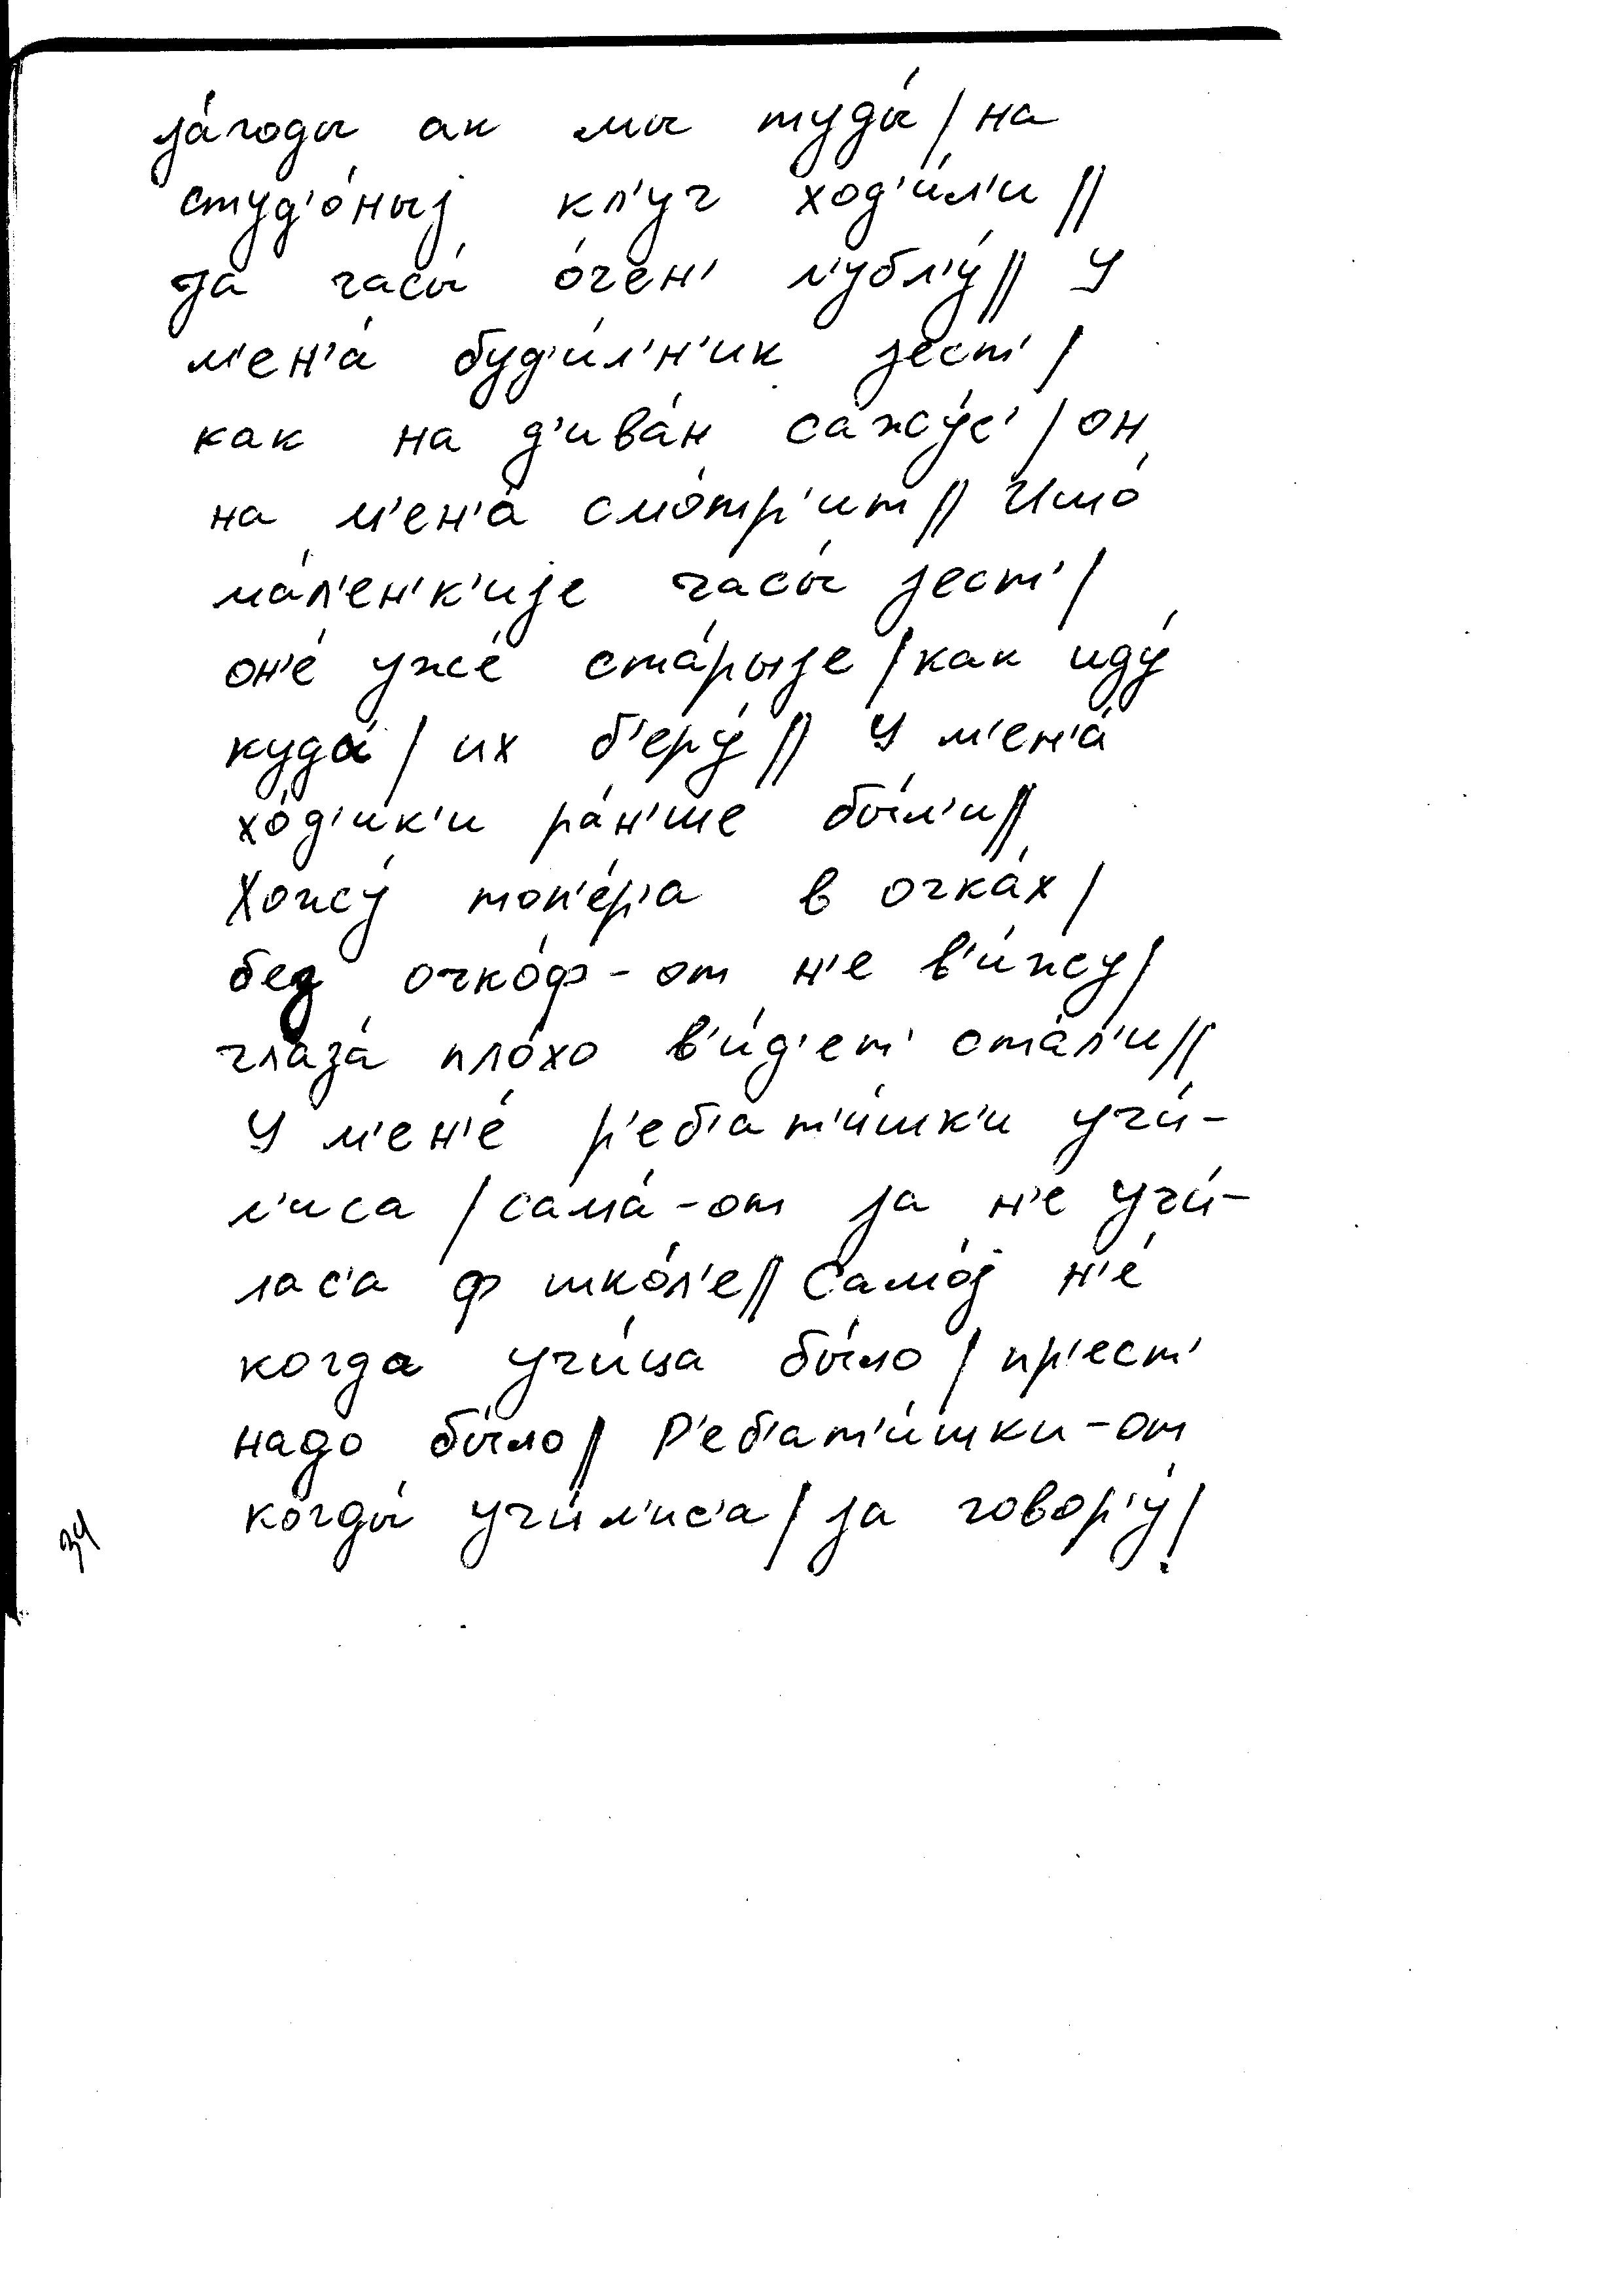 jа́годы ак мы туды́ / на
студ'о́ныj кл'уч ход'и́л'и //
jа часы́ о́чен' л'убл'у́ // У
м'ен'а́ буд'и́л'н'ик jест' /
как на д'ива́н сажу́с' / он
на м'ен'а́ смо́тр'ит // Ишо́
ма́л'ен'к'иjе часы́ jест' /
он'е́ уже́ ста́рыjе / как иду́
куда́ / их б'еру́ // У м'ен'а́
хо́д'ик'и ра́н'ше бы́л'и //
Хожу́ топ'е́р'а в очка́х /
без очко́ф-от н'е в'и́жу /
глаза́ пло́хо в'и́д'ет' ста́л'и //
У м'ен'е́ р'еб'ат'и́шк'и учи́-
л'иса / сама́-от jа н'е учи́-
лас'а ф шко́л'е // Само́j н'е́
когда учи́ца бы́ло / пр'ест'
надо бы́ло // Р'еб'ат'и́шки-от
когды́ учи́л'ис'а / jа говор'у́ /
34